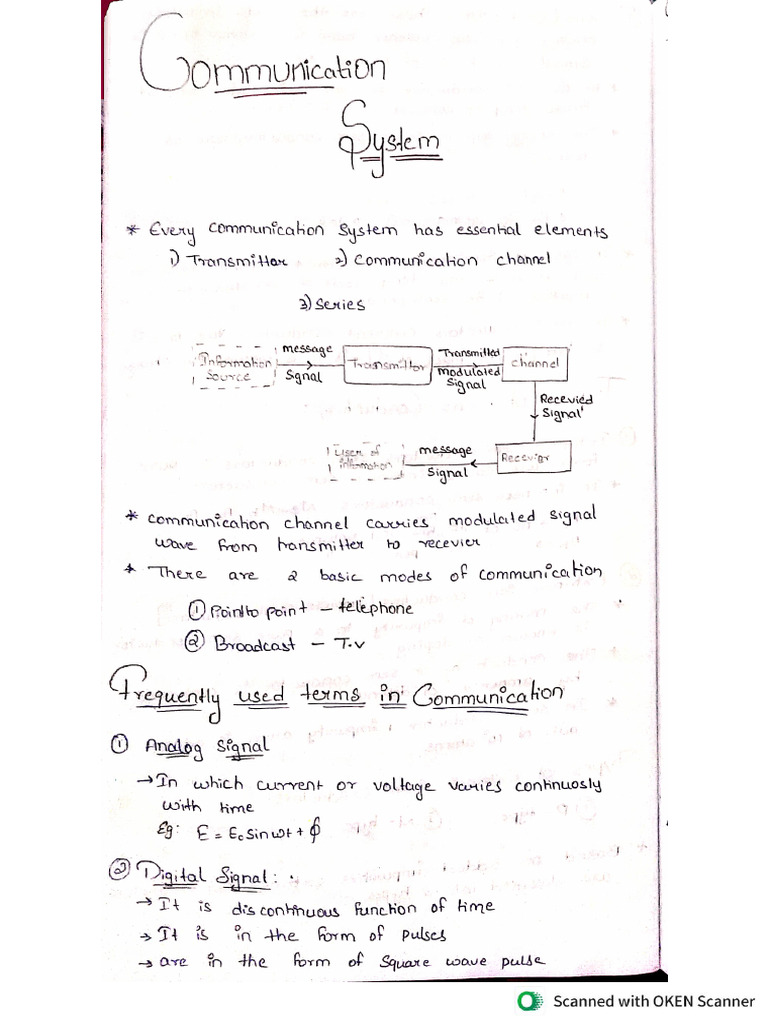 Communication
System
* Every communication System has essential elements
1) Transmittor 2) Communication channel
3) Series
Information Source
message Signal
Transmittor
Transmitted Modulated Signal
channel
Recevied Signal
Recevior
message Signal
User of information
* communication channel carries modulated signal
wave from transmitter to recevier
* There are 2 basic modes of communication
① Point to point - telephone
② Broadcast - T.v
Frequently used terms in Communication
① Analog Signal
→ In which current or voltage varies continuosly
with time
Eg: E = E₀ Sin wt + ϕ
② Digital Signal :
→ It is discontinuous function of time
→ It is in the form of pulses
→ are in the form of square wave pulse
Scanned with OKEN Scanner